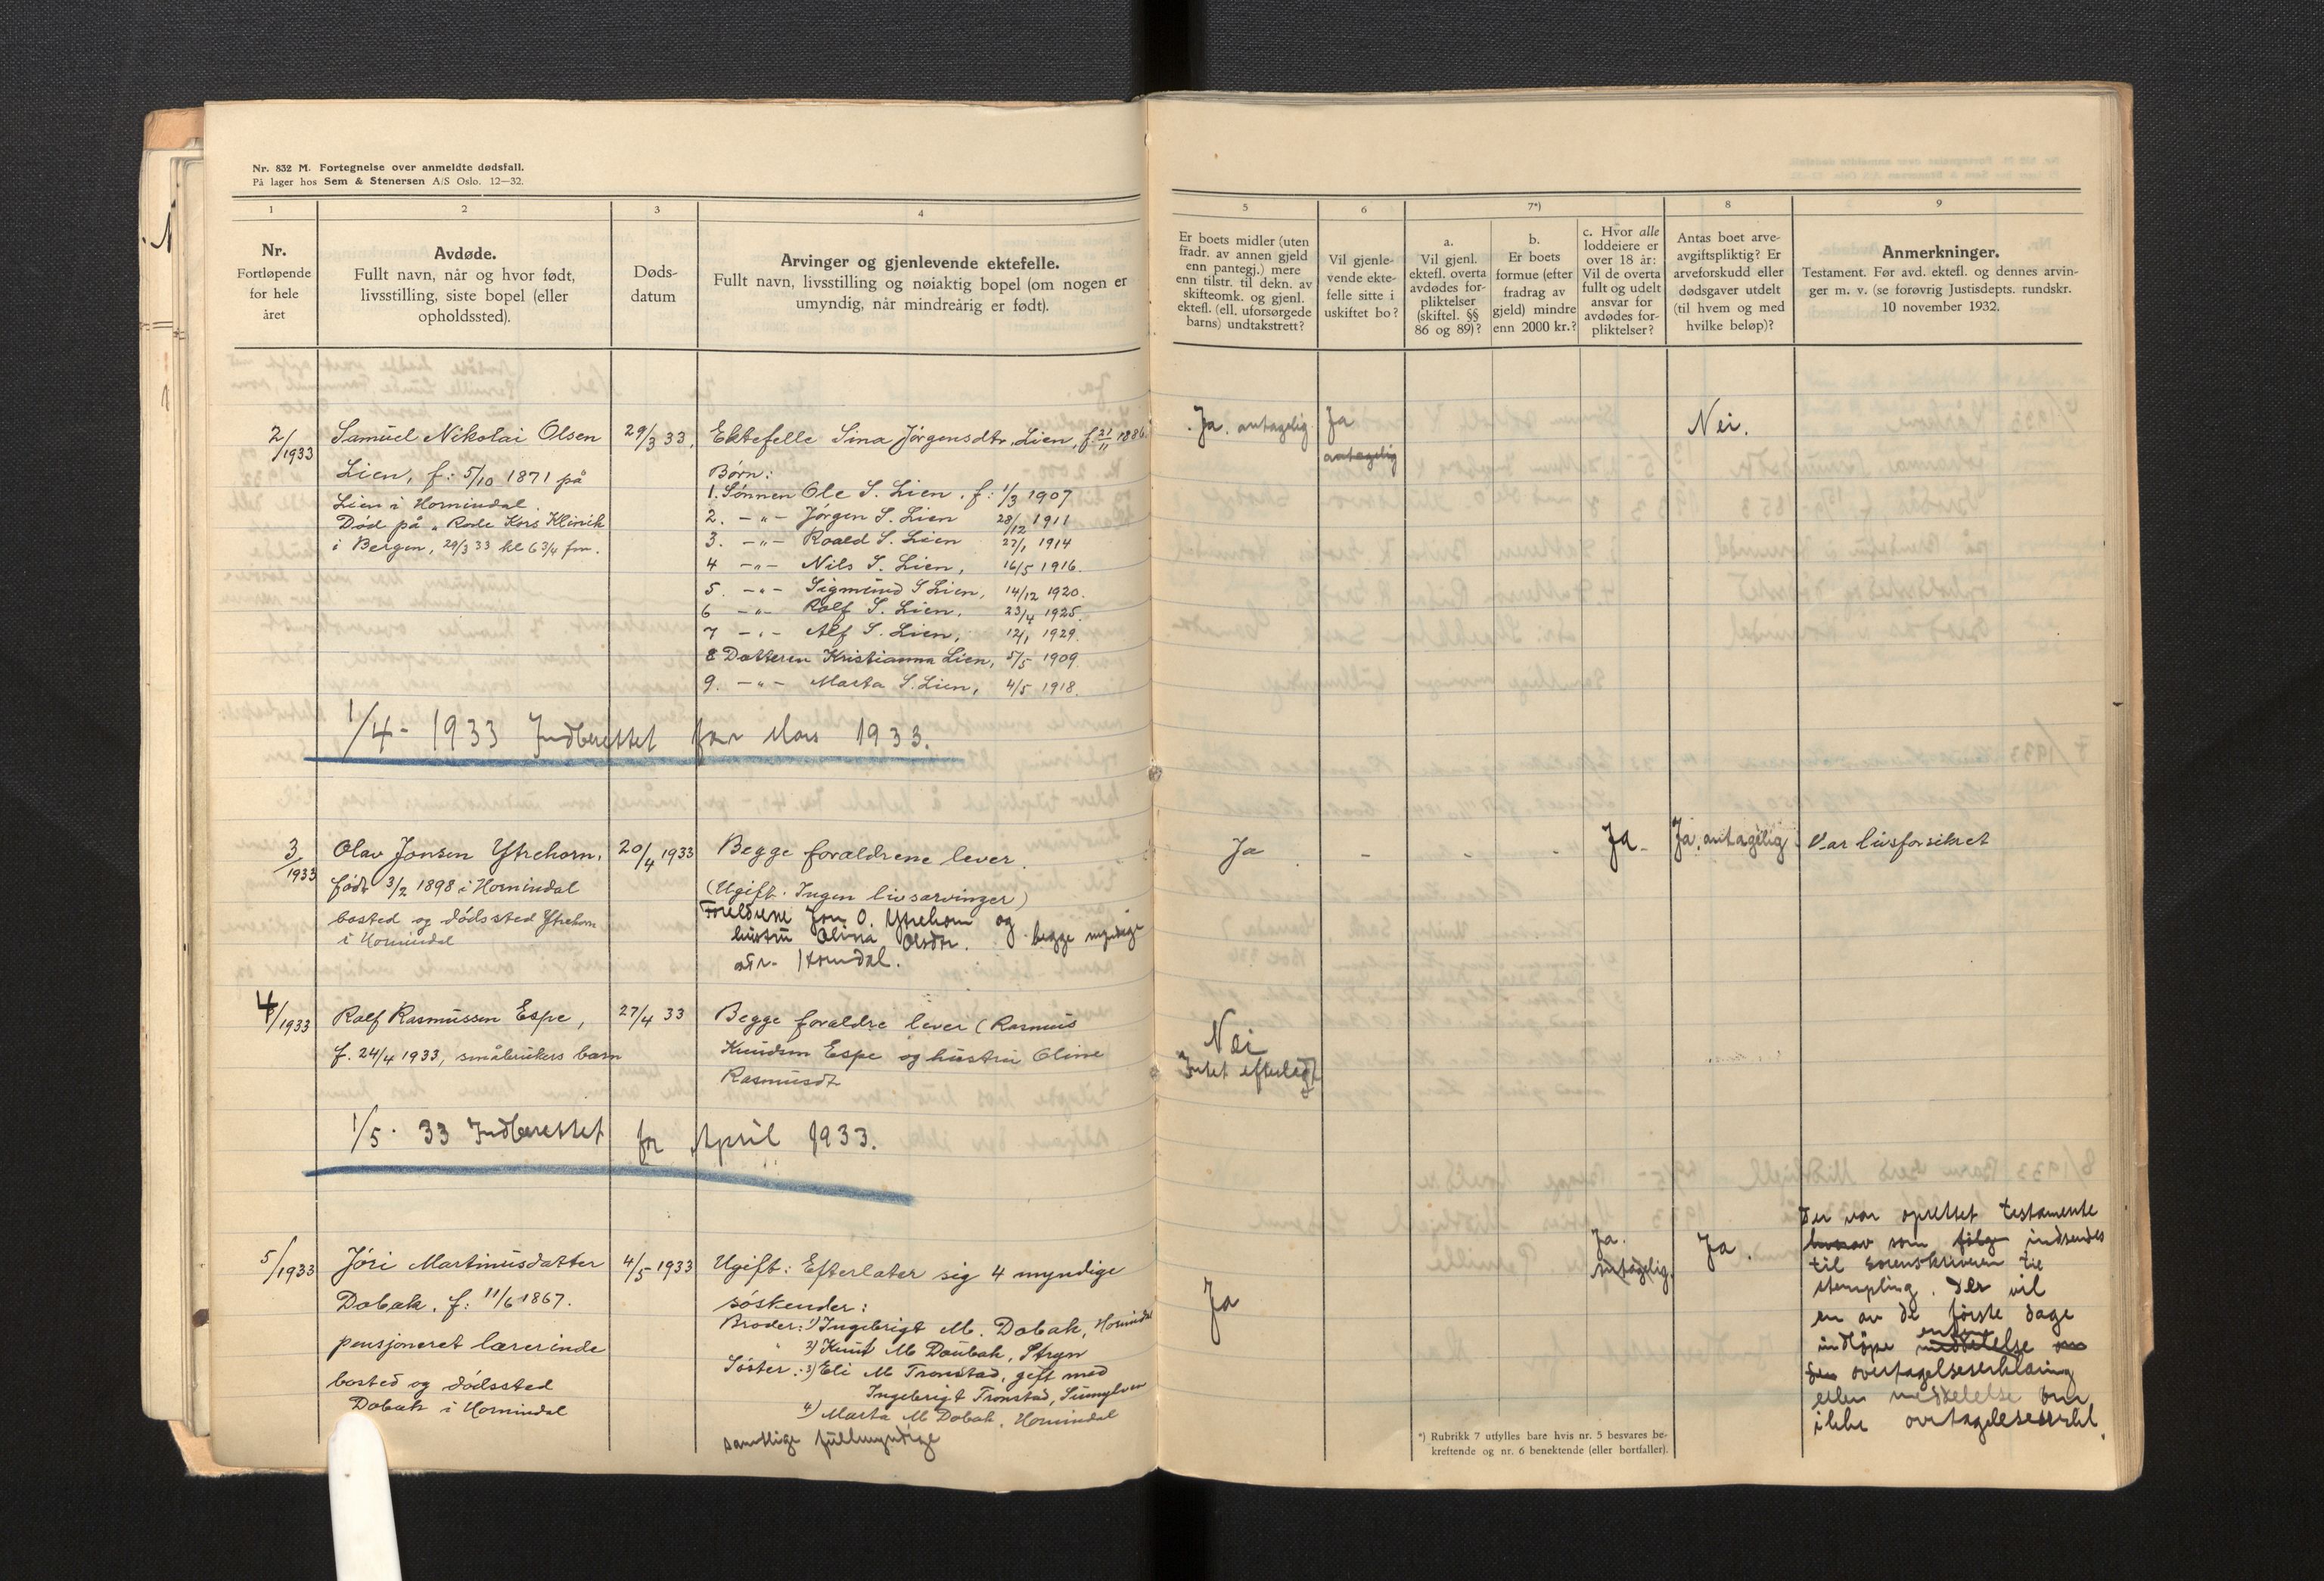 Nr. 832 M. Fortegnelse over anmeldte dødsfall.
På lager hos Sem & Stenersen A/S Oslo. 12—32.
1
2
3
4
Nr.
Fortløpende
for hele
året
Avdøde.
Fullt navn, når og hvor født,
livsstilling, siste bopel (eller
opholdssted).
Døds-
datum
Arvinger og gjenlevende ektefelle.
Fullt navn, livsstilling og nøiaktig bopel (om nogen er
umyndig, når mindreårig er født).
5
6
7*)
8
9
Er boets midler (uten
fradr. av annen gjeld
enn pantegj.) mere
enn tilstr. til dekn. av
skifteomk. og gjenl.
ektefl. (ell. uforsørgede
barns) undtakstrett?
Vil gjenle-
vende ekte-
felle sitte i
uskiftet bo?
a.
Vil gjenl.
ektefl. overta
avdødes for-
pliktelser
(skiftel. §§
86 og 89)?
b.
Er boets
formue (efter
fradrag av
gjeld) mindre
enn 2000 kr.?
c. Hvor alle
loddeiere er
over 18 år:
Vil de overta
fullt og udelt
ansvar for
avdødes for-
pliktelser?
Antas boet arve-
avgiftspliktig? Er
arveforskudd eller
dødsgaver utdelt
(til hvem og med
hvilke beløp)?
Anmerkninger.
Testament. Før avd. ektefl. og dennes arvin-
ger m. v. (se forøvrig Justisdepts. rundskr.
10 november 1932.
2/1933
Samuel Nikolai Olsen
Lien, f: 5/10 1871 på
Lien i Hornindal.
Død på "Røde Kors Klinik
i Bergen, 29/3 33 kl 6 3/4 fm.
29/3 33,
Ektefelle Sina Jørgensdtr. Lien, f 21/11 1886.
Børn:
1. Sønnen Ole S. Lien. f: 1/3 1907
2. -"- Jørgen S. Lien 28/12 1911
3. -"- Roald S. Lien 22/1 1914
4 -"- Nils S. Lien, 16/5 1916.
5. -"- Sigmund S Lien, 14/12 1920.
6 -"- Rolf S. Lien, 23/4 1925.
7 -"- Alf S. Lien, 12/1 1929.
8 Datteren Kristianna Lien, 5/5 1909.
9. -"- Marta S. Lien, 4/5 1918.
Ja. antagelig.
Ja
antagelig
Nei.
1/4 - 1933 Indberettet for Mars 1933.
3/1933
Olav Jonsen Ytrehorn,
født 3/2 1898 i Hornindal
bosted og dødssted Ytrehorn
i Hornindal
20/4 1933
Begge forældrene lever.
(Ugift. Ingen livsarvinger)
Foreldrene Jon O. Ytrehorn og
hustru Olina Olsdtr. begge myndige
adr. Horndal.
Ja
-
-
-
Ja -
Ja. antagelig.
Var livsforsikret
4/1933
Rolf Rasmussen Espe,
f. 24/4 1933, småbrukers barn
27/4 33
Begge forældre lever (Rasmus
Knudsen Espe og hustru Oline
Rasmusdt
Nei
Intet efterladt
1/5 - 33 Indberettet for April 1933.
5/1933
Jøri Martinusdatter
Dobak. f: 11/6 1867.
pensjoneret lærerinde
bosted og dødssted
Dobak i Hornindal
4/5 1933
Ugift: Efterlater sig 4 myndige
søskender:
Broder: 1) Ingebrigt M. Dobak, Hornindal
" 2) Knut M Doubak, Stryn
Søster: 3) Eli M Tronstad, gift med
Ingebrigt Tronstad, Sunnylven
4) Marta M Dobak, Hornindal
samtlige fullmyndige
Ja
Ja.
antagelig.
Ja.
Der var oprettet testamente
hvorav som følge indsendes
til sorenskriveren til
stempling. Der vil
en av de første dage
indløpe enten meddelelse om
den overtagelseserklæring
eller meddelelse om
ikke overtagelseserkl.
*) Rubrikk 7 utfylles bare hvis nr. 5 besvares be-
kreftende og nr. 6 benektende (eller bortfaller).